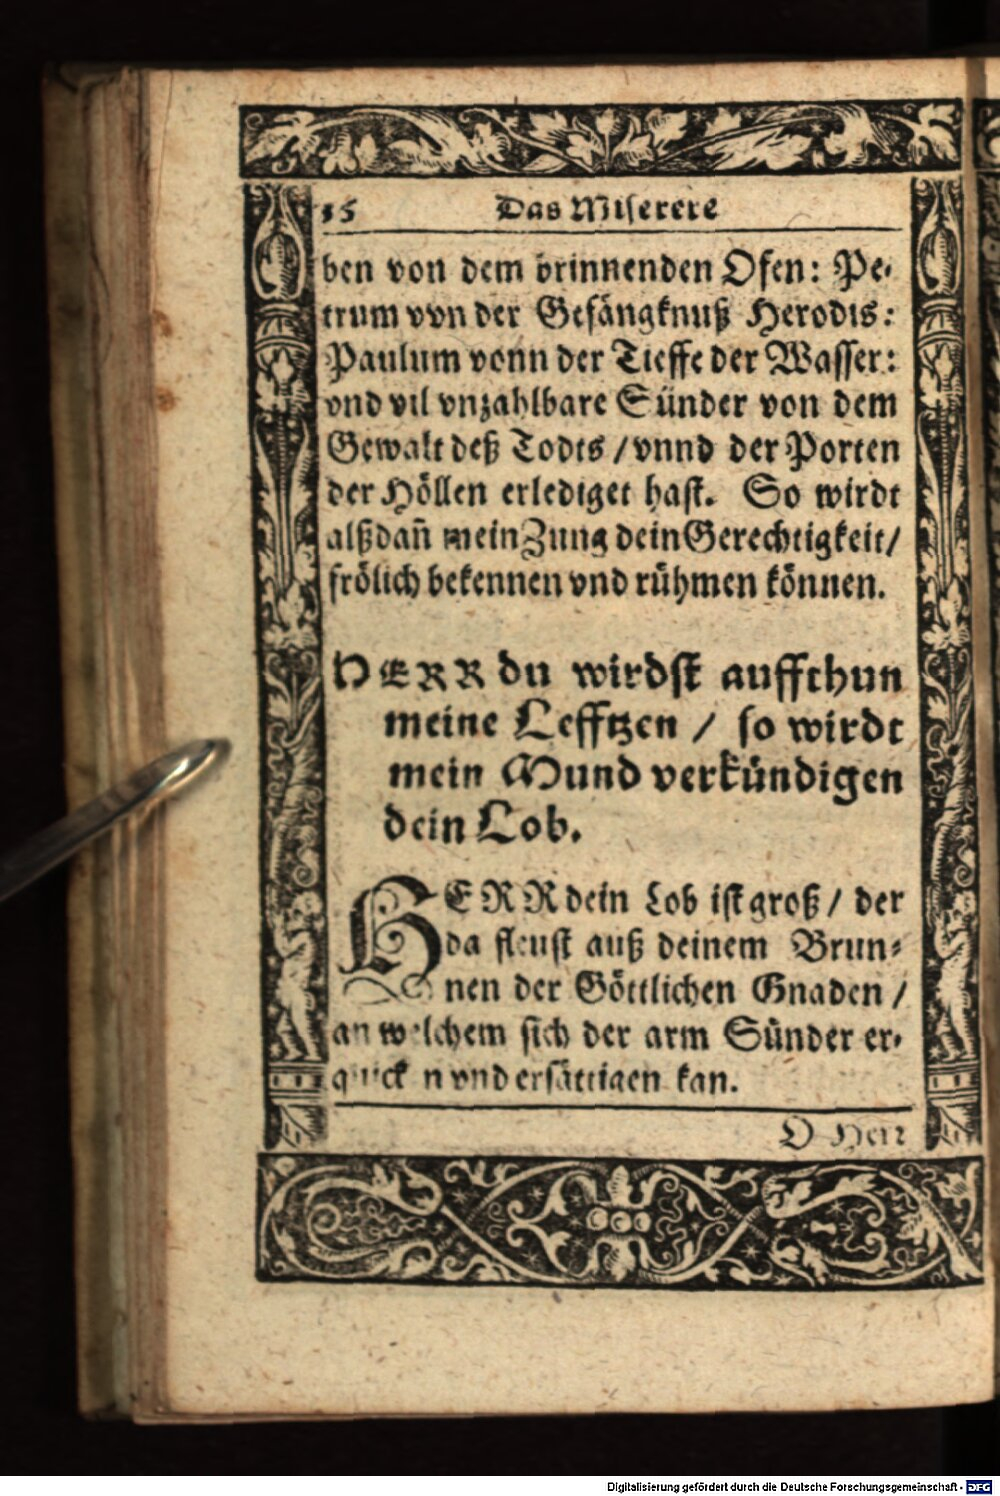 15 Das Miserere
ben von dem brinnenden Ofen: Pe-
trum von der Gefängknuß Herodis:
Paulum vonn der Tieffe der Wasser:
vnd vil vnzahlbare Sünder von dem
Gewalt deß Todts / vnnd der Porten
der Höllen erlediget hast. So wirdt
alßdañ mein Zung dein Gerechtigkeit/
frölich bekennen vnd rühmen können.
HERR du wirdst auffthun
meine Lefftzen / so wirdt
mein Mund verkündigen
dein Lob.
HERR dein Lob ist groß / der
da fleust auß deinem Brun-
nen der Göttlichen Gnaden /
an welchem sich der arm Sünder er-
quicken vnd ersättigen kan.
O Herr
Digitalisierung gefördert durch die Deutsche Forschungsgemeinschaft - DFG